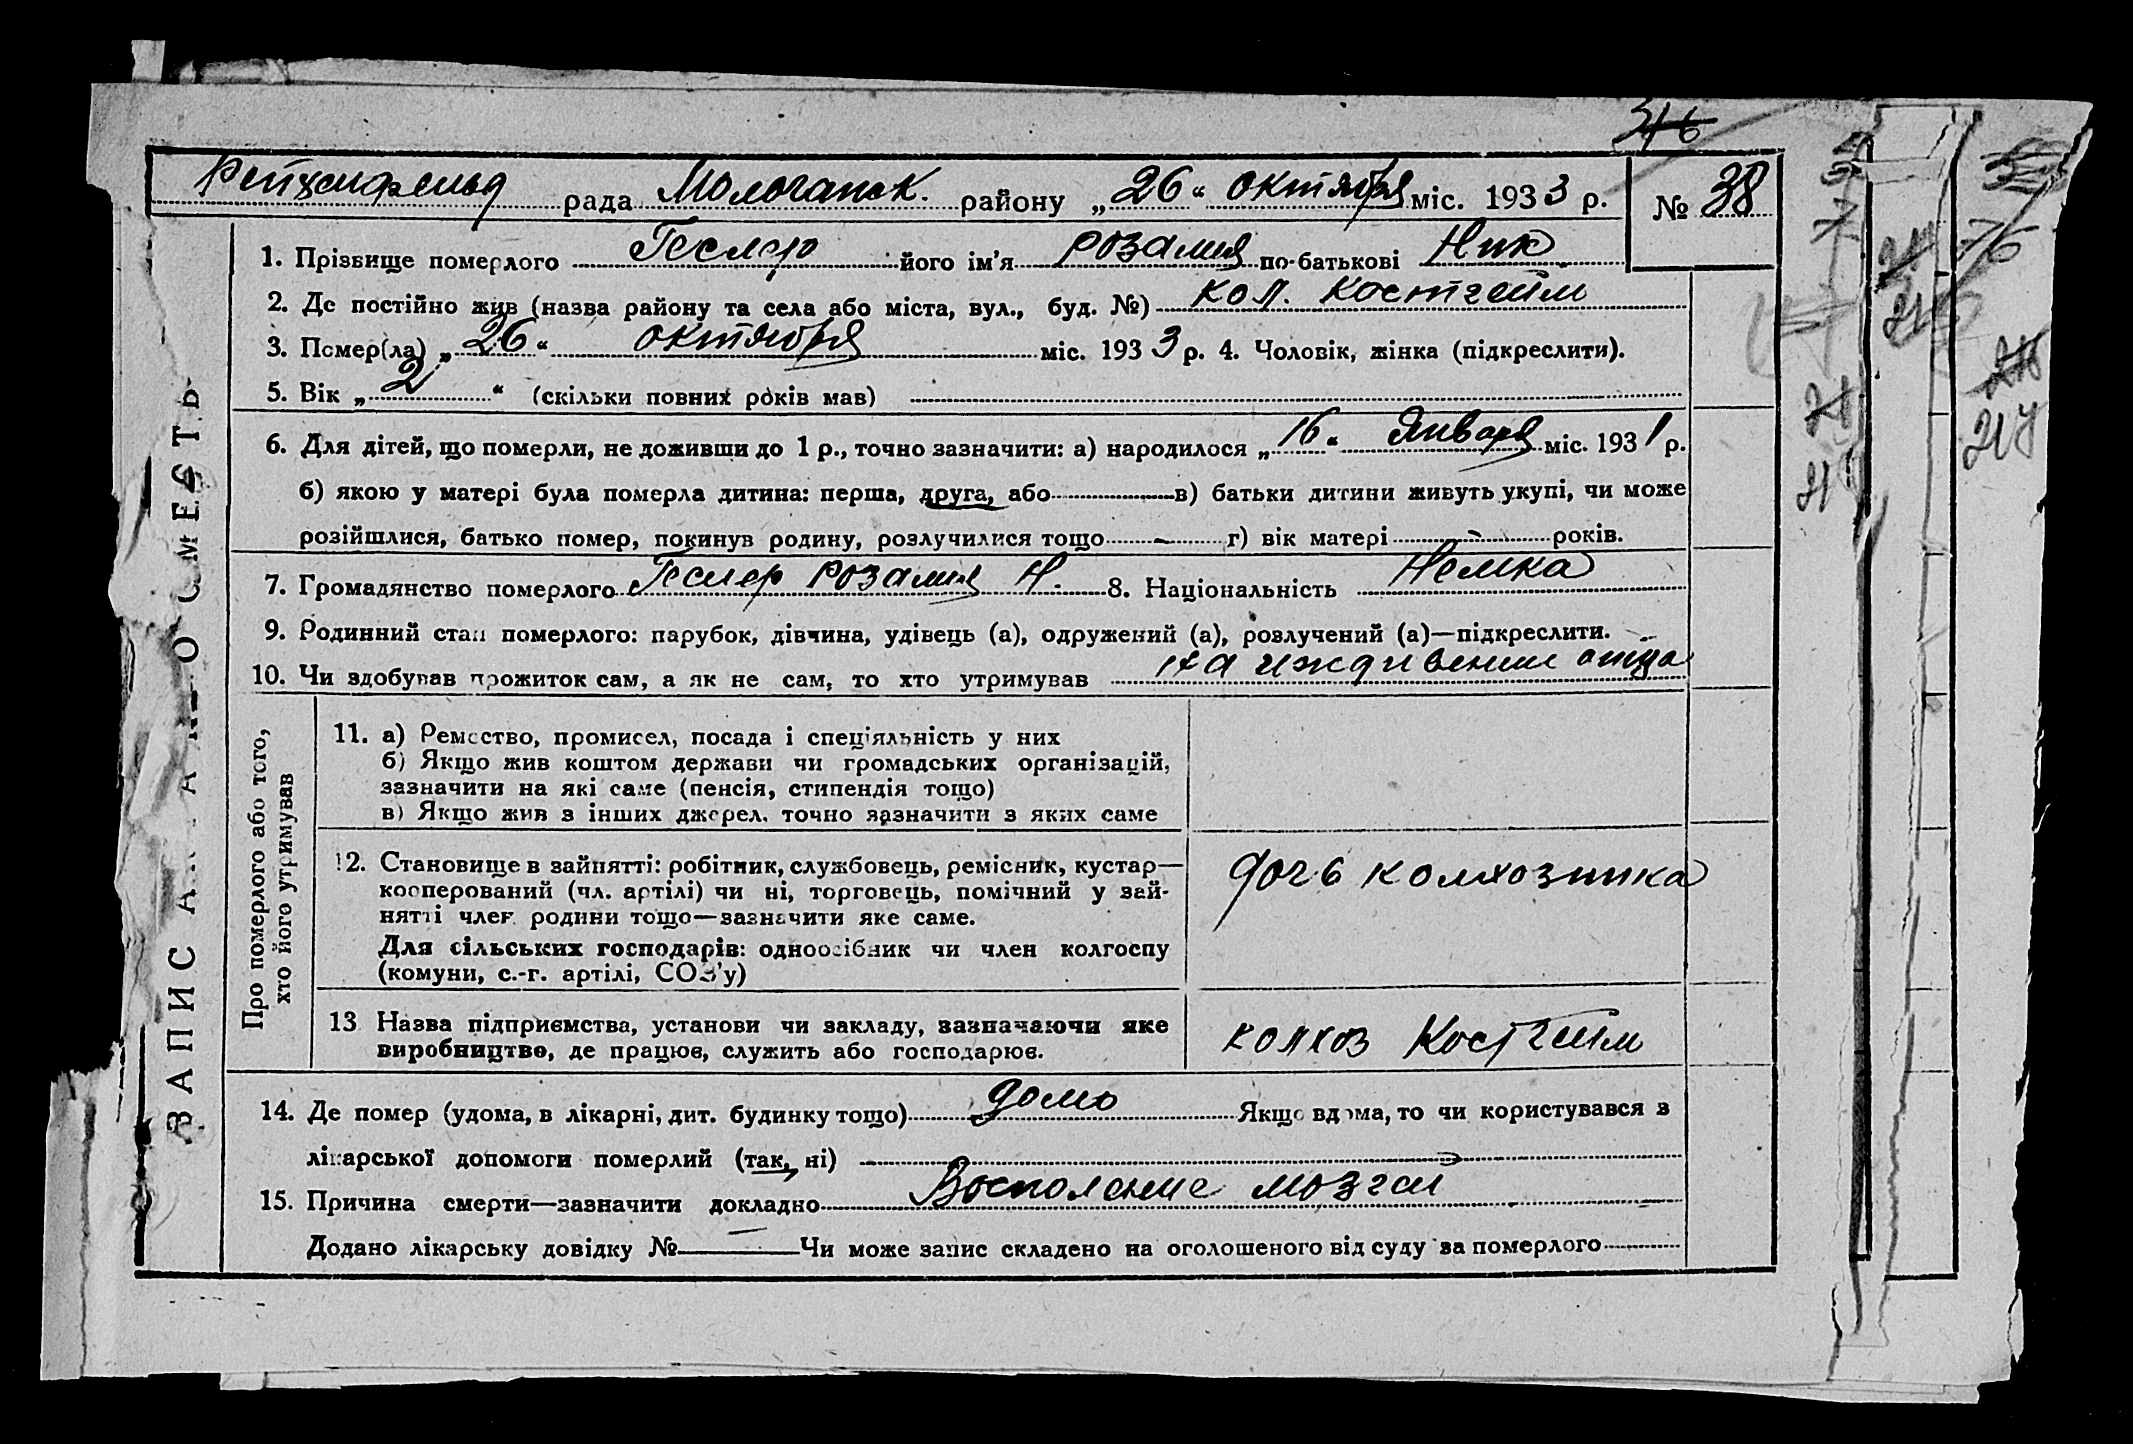 346
Рейхенфельд рада Молочанск. району „26“ октября міс. 1933 р. № 38
1. Прізвище померлого Геслер його ім'я Розалия по-батькові Ник
2. Де постійно жив (назва району та села або міста, вул., буд. №) кол. Костгейм
3. Помер(ла) „26“ октября міс. 1933 р. 4. Чоловік, жінка (підкреслити).
5. Вік „2“ (скільки повних років мав)
6. Для дітей, що померли, не доживши до 1 р., точно зазначити: а) народилося „16“ Января міс. 1931 р.
б) якою у матері була померла дитина: перша, друга, або в) батьки дитини живуть укупі, чи може
розійшлися, батько помер, покинув родину, розлучилися тощо - г) вік матері - років.
7. Громадянство померлого Геслер Розалия Н. 8. Національність Немка
9. Родинний стан померлого: парубок, дівчина, удівець (а), одружений (а), розлучений (а)—підкреслити.
10. Чи здобував прожиток сам, а як не сам, то хто утримував на иждивении отца
ЗАПИС
Про померлого або того,
хто його утримував
11. а) Ремество, промисел, посада і спеціяльність у них
б) Якщо жив коштом держави чи громадських організацій,
зазначити на які саме (пенсія, стипендія тощо)
в) Якщо жив з інших джерел, точно зазначити з яких саме
12. Становище в зайнятті: робітник, службовець, ремісник, кустар—
кооперований (чл. артілі) чи ні, торговець, помічний у зай-
нятті член родини тощо—зазначити яке саме.
Для сільських господарів: одноосібник чи член колгоспу
(комуни, с.-г. артілі, СОЗ'у)
дочь колхозника
13 Назва підприємства, установи чи закладу, зазначаючи яке
виробництво, де працює, служить або господарює.
колхоз Костгейм
14. Де помер (удома, в лікарні, дит. будинку тощо) дома Якщо вдома, то чи користувався з
лікарської допомоги померлий (так, ні)
15. Причина смерти—зазначити докладно Восполение мозгей
Додано лікарську довідку № — Чи може запис складено на оголошеного від суду за померлого